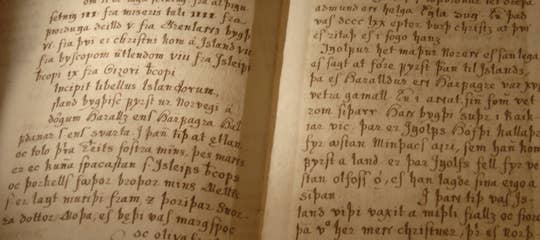 setning IIII fra misseris tali IIII fra
þorðunga deilld V. fra Grenlanz bygþ
VI. fra þvi er christni kom á Island VII
fra byscopom útlendom VIII fra Isleipi
bcopi IX fra Gizori bcopi
Incipit libellus Islandorum,
Island bygþisc fyrst ur Norvegi á
dogum Harallz ens Harfagra Hal
fdanar s. ens svarta. I þan tiþ at etlan,
oc tolo þra Teits fostra mins, þes manz
er ec kuna spacastan s. Isleips bcops
oc þorkells faþor broþor mins Gellis
er langt mundi fram, oc Þoriþar Snor
ra dottor Goþa, es beþi vas margspoc
oc
admund en helga.
vas DCCC LXX epter burþ christz at þvi
es ritaþ es i sogo hans.
Ingolfur het maþur Noren es sanlega
es sagt at fore fyrst þan til Islands,
þa es Haralldur en Harfagre var XVI
vetra gamall. En i anat sin fom vet
rom siþarr Han bygþi suþr i Reik
iar vic. þar er Ingolfs Hofþi kallaþr
fyr austan Minþacs airi, sem han kom
fyrst a land. er þar Ingolfs fell fyr ve
stan olfoss ó, es han lagde sina eigo a
siþan. I þan tiþ vas Is
land viþi vaxit a miþli fiallz oc fioro
þa voro her menn christner, þeir es Norþ